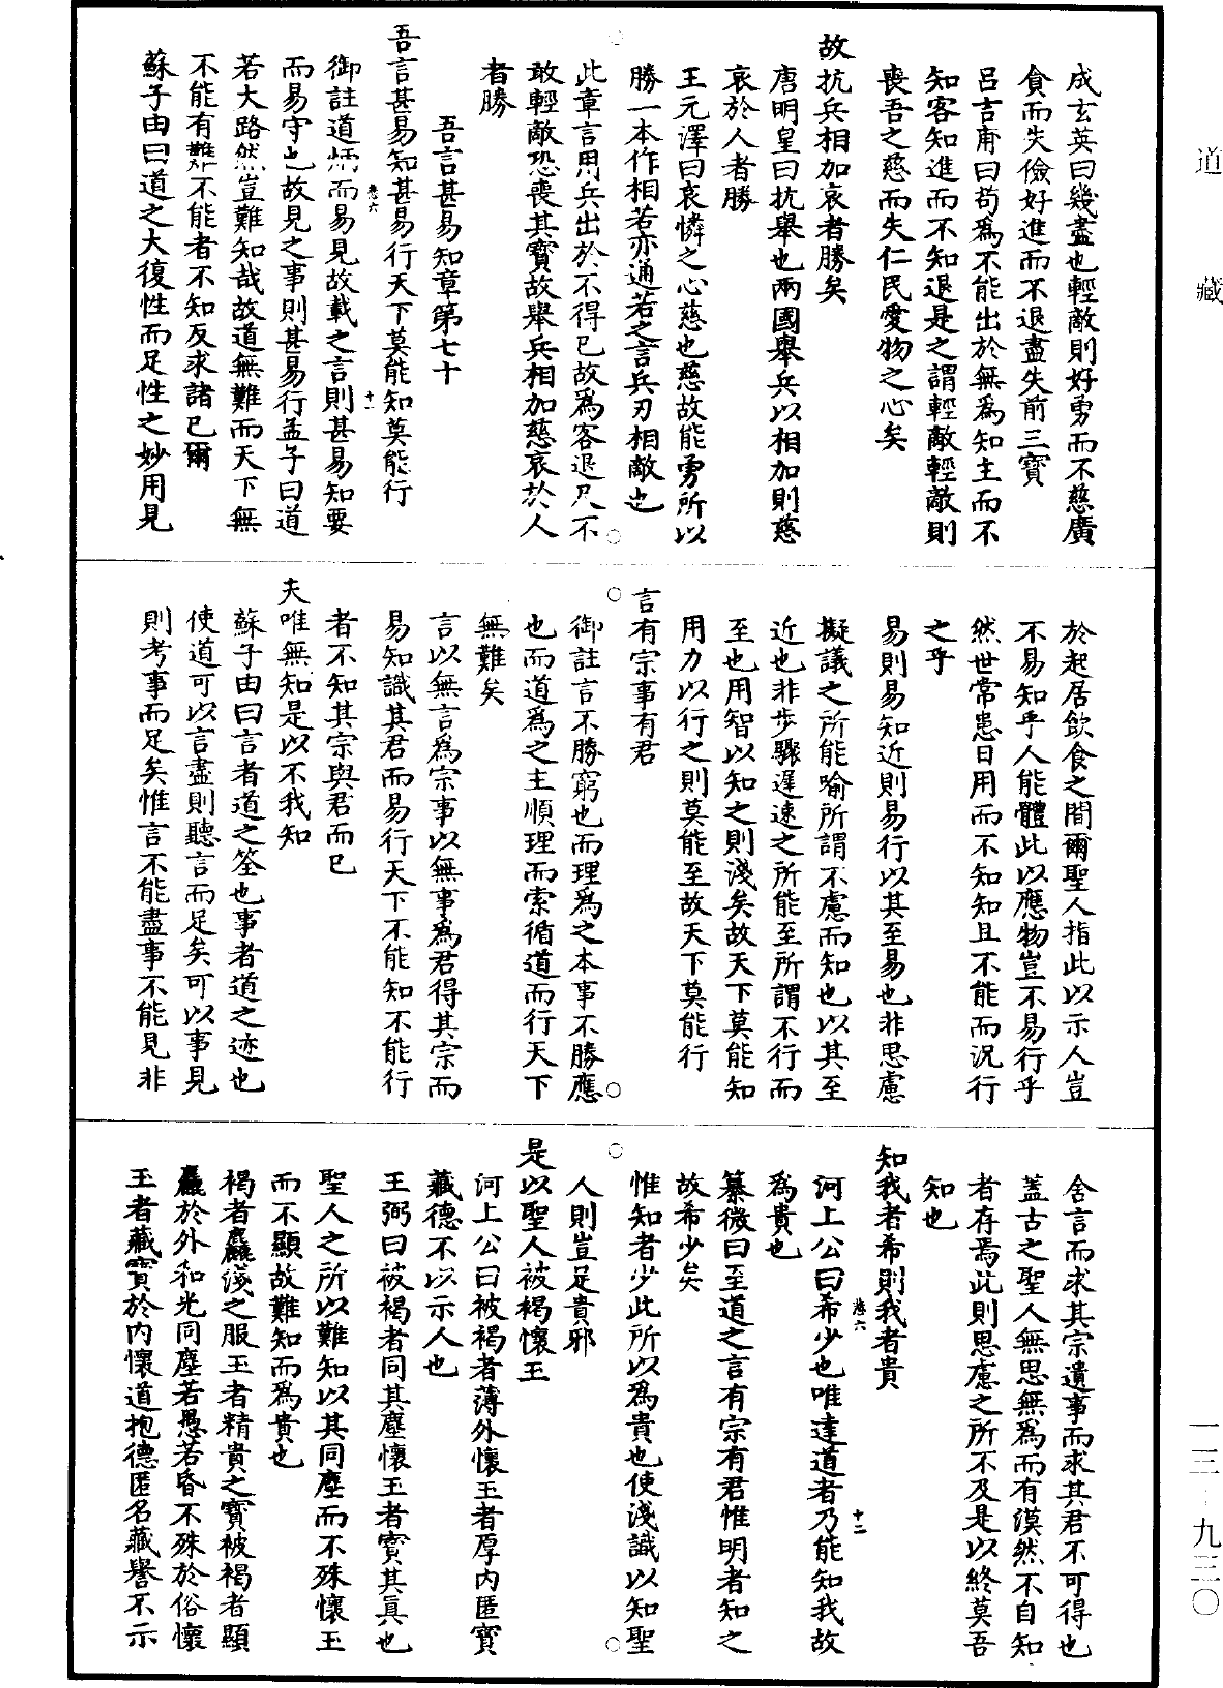 道藏
成玄英曰幾盡也輕敵則好勇而不慈廣
貪而失儉好進而不退盡失前三寶
呂吉甫曰苟爲不能出於無爲知主而不
知客知進而不知退是之謂輕敵輕敵則
喪吾之慈而失仁民愛物之心矣
故抗兵相加哀者勝矣
唐明皇曰抗舉也兩國舉兵以相加則慈
哀於人者勝
王元澤曰哀憐之心慈也慈故能勇所以
勝一本作相若亦通若之言兵刃相敵也
此章言用兵出於不得已故爲客退尺不
敢輕敵恐喪其寶故舉兵相加慈哀於人
者勝
吾言甚易知章第七十
吾言甚易知甚易行天下莫能知莫能行
卷六 十一
御註道炳而易見故載之言則甚易知要
而易守也故見之事則甚易行孟子曰道
若大路然豈難知哉故道無難而天下無
不能有難不能者不知反求諸已爾
蘇子由曰道之大復性而足性之妙用見
於起居飲食之間爾聖人指此以示人豈
不易知乎人能體此以應物豈不易行乎
然世常患日用而不知知且不能而況行
之乎
易則易知近則易行以其至易也非思慮
擬議之所能喻所謂不慮而知也以其至
近也非步驟遲速之所能至所謂不行而
至也用智以知之則淺矣故天下莫能知
用力以行之則莫能至故天下莫能行
言有宗事有君
御註言不勝窮也而理爲之本事不勝應
也而道爲之主順理而索循道而行天下
無難矣
言以無言爲宗事以無事爲君得其宗而
易知識其君而易行天下不能知不能行
者不知其宗與君而已
夫唯無知是以不我知
蘇子由曰言者道之筌也事者道之迹也
使道可以言盡則聽言而足矣可以事見
則考事而足矣惟言不能盡事不能見非
舍言而求其宗遺事而求其君不可得也
蓋古之聖人無思無爲而有漠然不自知
者存焉此則思慮之所不及是以終莫吾
知也
知我者希則我者貴
卷六 十二
河上公曰希少也唯達道者乃能知我故
爲貴也
纂微曰至道之言有宗有君惟明者知之
故希少矣
惟知者少此所以爲貴也使淺識以知聖
人則豈足貴邪
是以聖人被褐懷玉
河上公曰被褐者薄外懷玉者厚內匿寶
藏德不以示人也
王弼曰被褐者同其塵懷玉者寶其眞也
聖人之所以難知以其同塵而不殊懷玉
而不顯故難知而爲貴也
褐者麤淺之服玉者精貴之寶被褐者顯
麤於外和光同塵若愚若昏不殊於俗懷
玉者藏寶於內懷道抱德匿名藏譽不示
一三‧九三〇